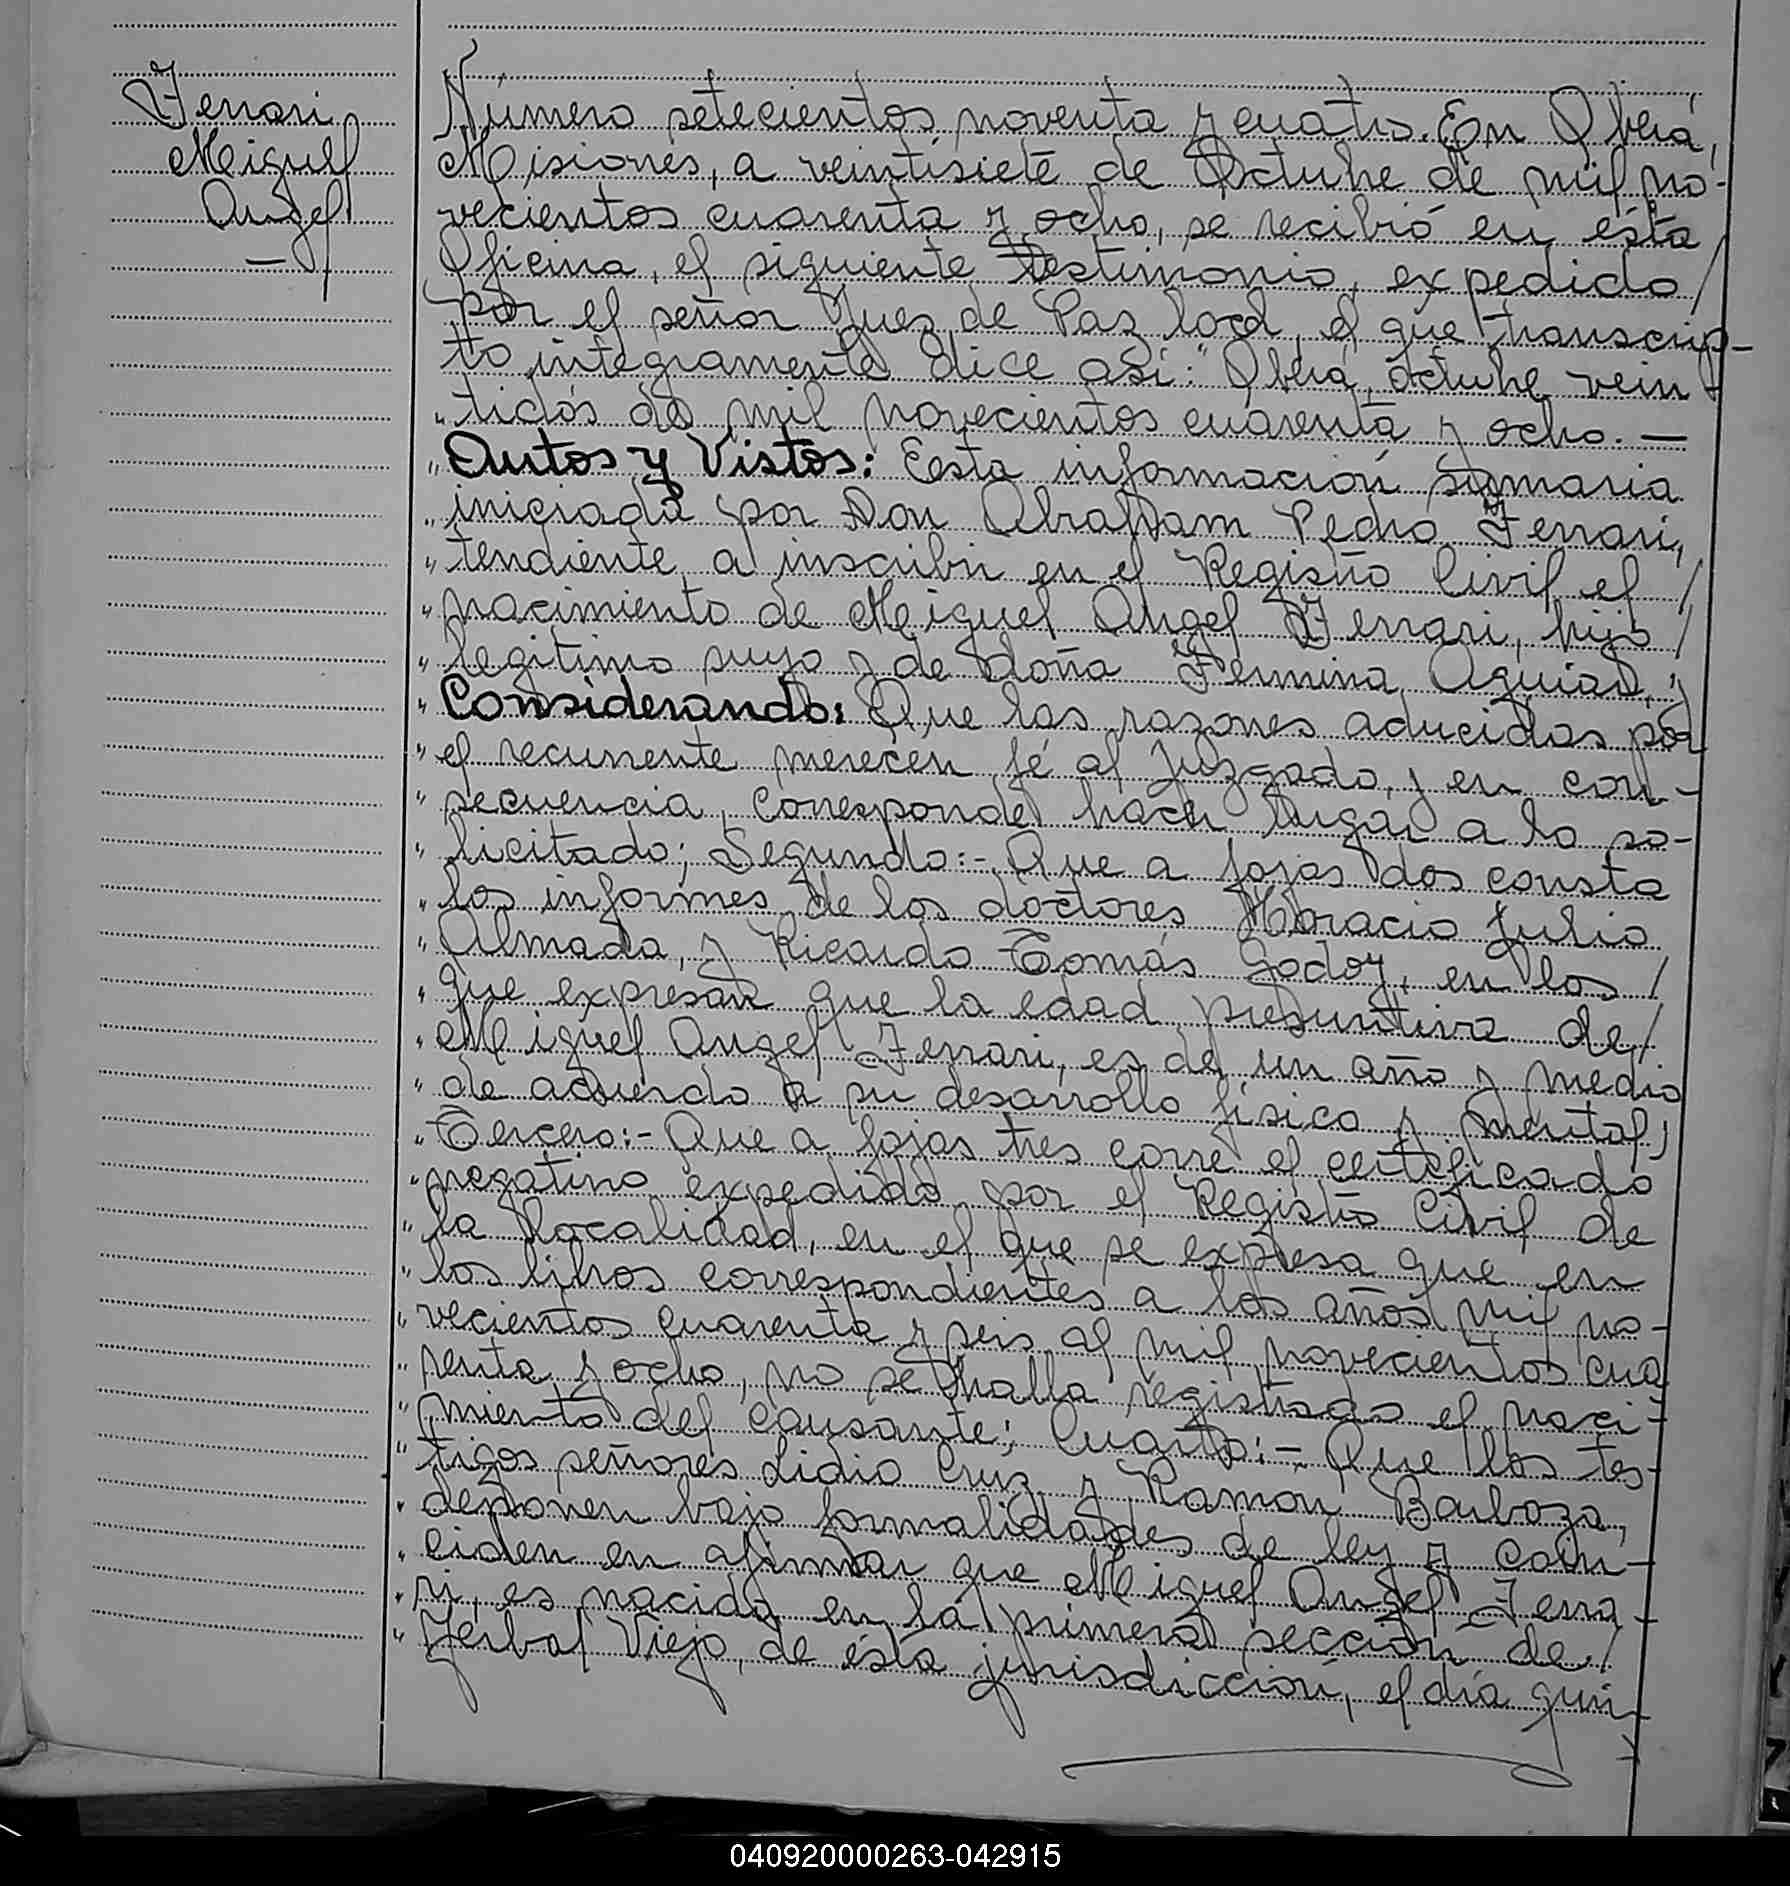 Ferrari
Miguel
Angel
—
Número setecientos noventa y cuatro. En Oberá,
Misiones, a veintisiete de Octubre de mil no-
vecientos cuarenta y ocho, se recibió en ésta
Oficina, el siguiente Testimonio, expedido /
por el señor Juez de Paz local, el que transcrip-
to integramente dice asi: "Oberá, octubre vein
" tidós de mil novecientos cuarenta y ocho. —
" Autos y Vistos: Esta información sumaria
" iniciada por Don Abraham Pedro Ferrari,
" tendiente a inscribir en el Registro Civil el /
" nacimiento de Miguel Angel Ferrari, hijo /
" legitimo suyo y de doña Fermina Aguiar, y
" Considerando: Que las razones aducidas por
" el recurrente merecen fé al Juzgado, y en con-
" secuencia, corresponde hacer lugar a lo so-
" licitado; Segundo:- Que a fojas dos consta
" los informes de los doctores Horacio Julio
" Almada, y Ricardo Tomás Godoy, en los /
" que expresan que la edad presuntiva de /
" Miguel Angel Ferrari, es de un año y medio
" de acuerdo a su desarrollo físico y mental;
" Tercero:- Que a fojas tres corre el certificado
" negativo expedido por el Registro Civil de
" la localidad, en el que se expresa que en
" los libros correspondientes a los años mil no-
" vecientos cuarenta y seis al mil novecientos cua
" renta y ocho, no se halla registrado el naci-
" miento del causante; Cuarto:- Que los tes-
" tigos señores Lidio Cruz y Ramon Barboza,
" deponen bajo formalidades de ley y coin-
" ciden en afirmar que Miguel Angel Ferra-
" ri, es nacido en la primera sección de /
" Yerbal Viejo, de ésta jurisdicción, el día quin
040920000263-042915